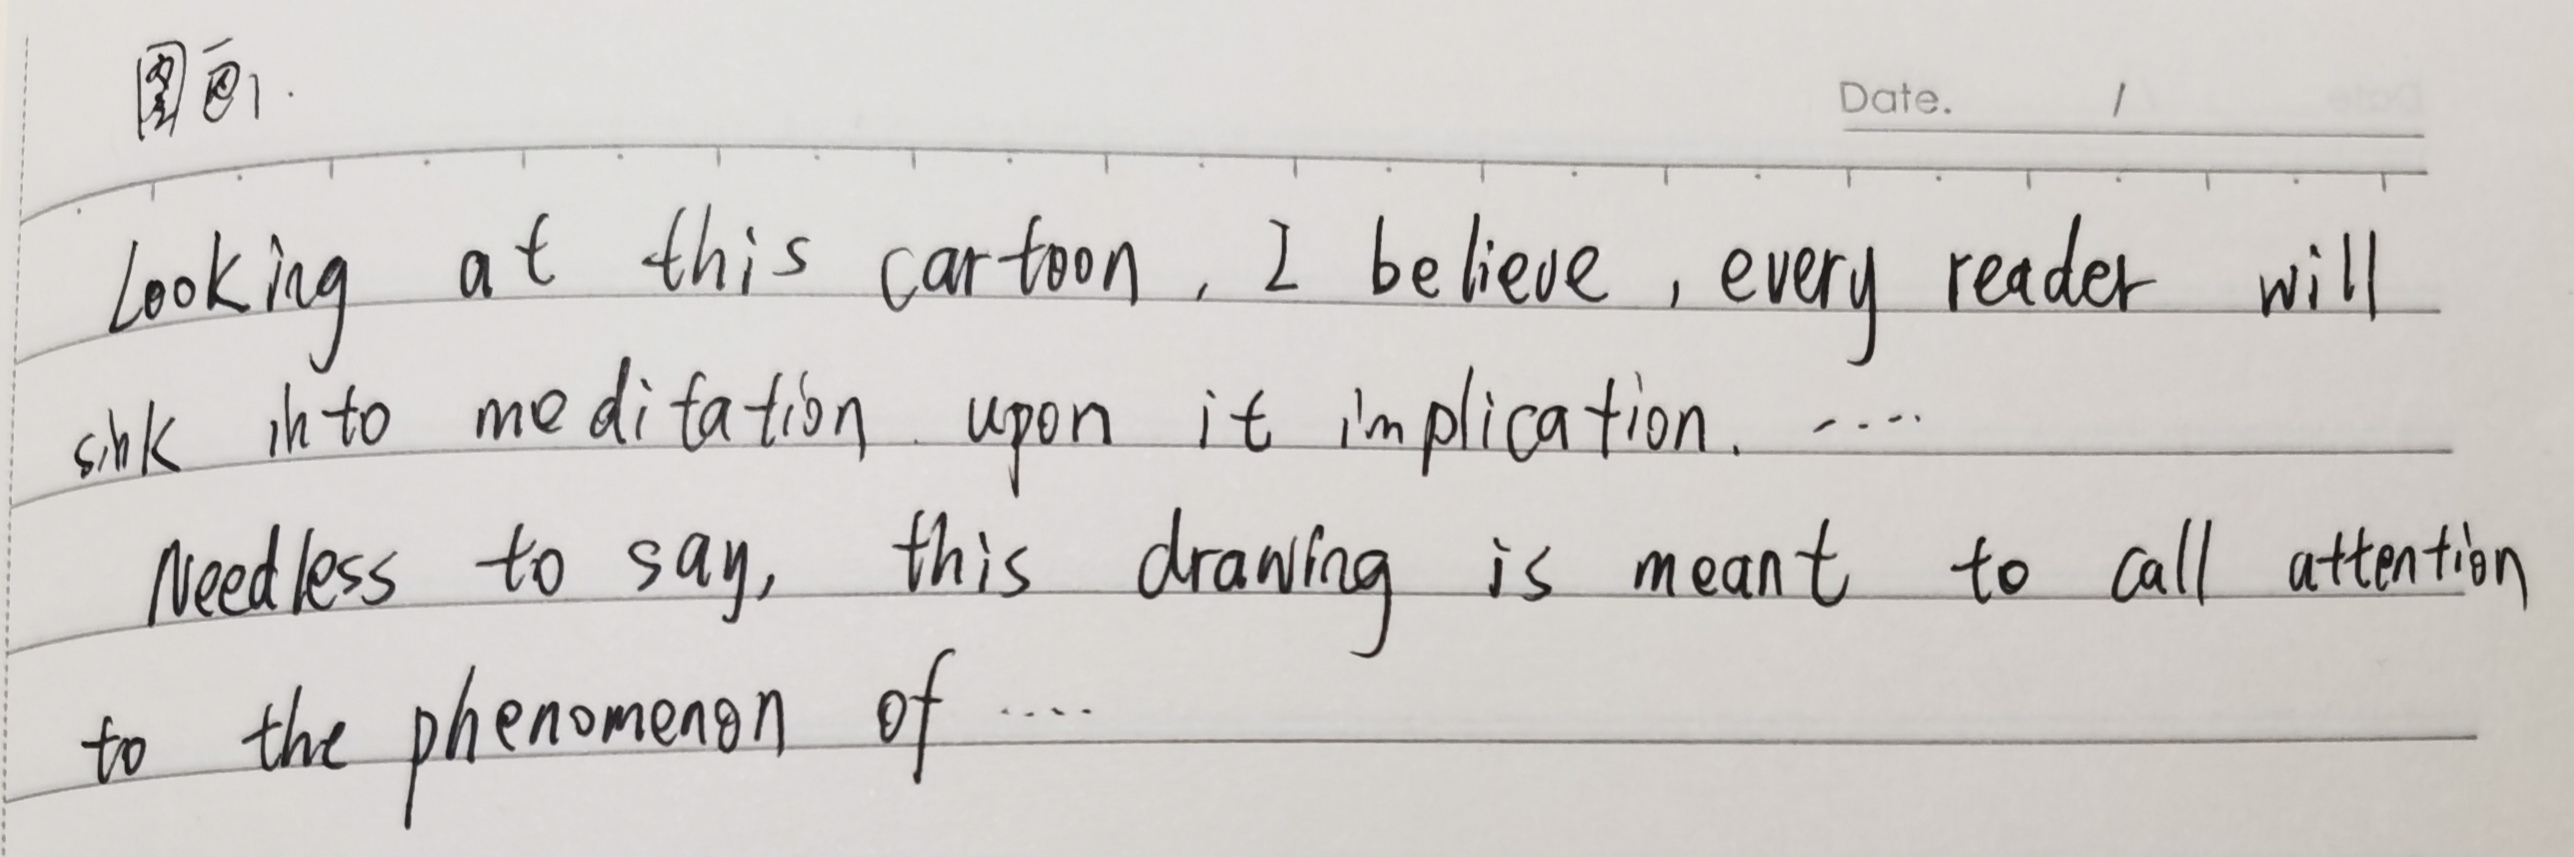 图画1.
Date. /
Looking at this cartoon, I believe, every reader will
sink into meditation upon it implication. ....
Needless to say, this drawing is meant to call attention
to the phenomenon of ....